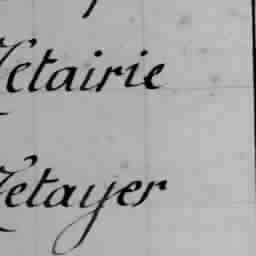 Metairie
Metayer